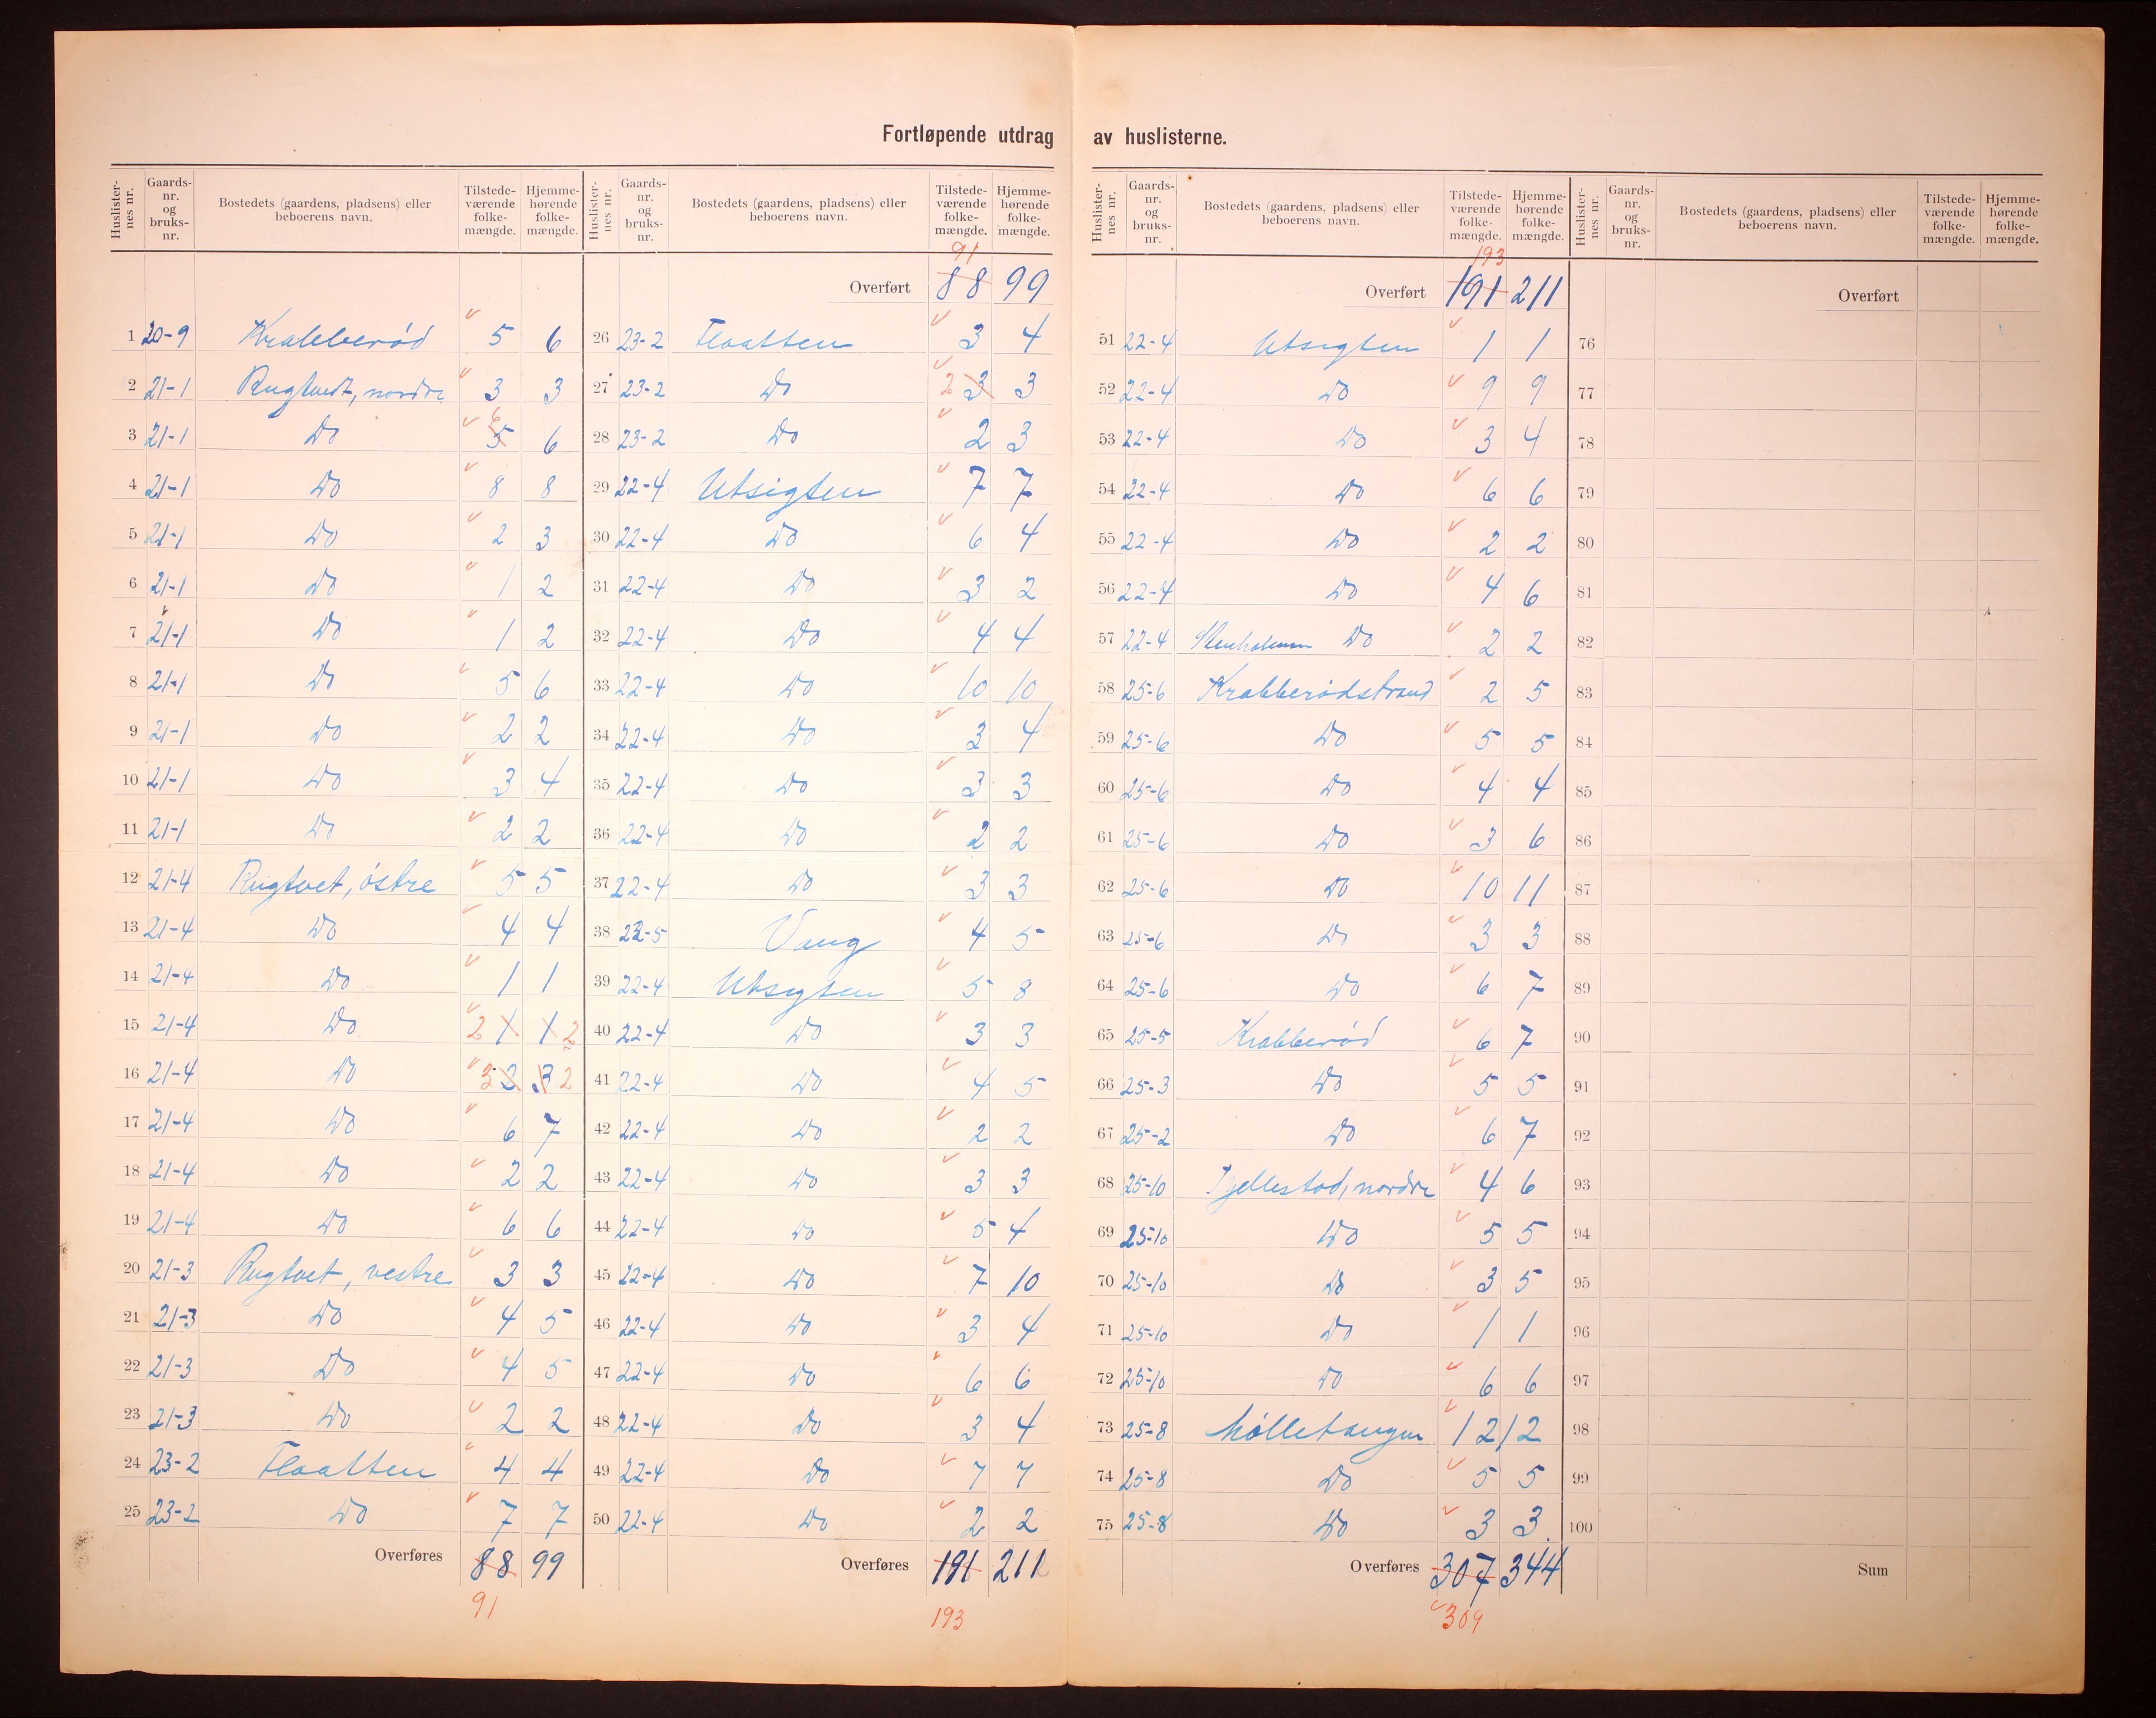 Fortløpende utdrag av huslisterne.
Huslisternes nr. Gaardsnr. og bruksnr. Bostedets (gaardens, pladsens) eller beboerens navn. Tilstedeværende folkemængde. Hjemmehørende folkemængde.
1 20-9 Krabberød 5 6
2 21-1 Rugtvedt, nordre 3 3
3 21-1 Do 5 6 6
4 21-1 Do 8 8
5 21-1 Do 2 3
6 21-1 Do 1 2
7 21-1 Do 1 2
8 21-1 Do 5 6
9 21-1 Do 2 2
10 21-1 Do 3 4
11 21-1 Do 2 2
12 21-4 Rugtvet, østre 5 5
13 21-4 Do 4 4
14 21-4 Do 1 1
15 21-4 Do 2 1 1 2
16 21-4 Do 3 2 3 2
17 21-4 Do 6 7
18 21-4 Do 2 2
19 21-4 Do 6 6
20 21-3 Rugtvet, vestre 3 3
21 21-3 Do 4 5
22 21-3 Do 4 5
23 21-3 Do 2 2
24 23-2 Flaatten 4 4
25 23-2 Do 7 7
Overføres 88 99
91
Huslisternes nr. Gaardsnr. og bruksnr. Bostedets (gaardens, pladsens) eller beboerens navn. Tilstedeværende folkemængde. Hjemmehørende folkemængde.
91
Overført 88 99
26 23-2 Flaatten 3 4
27 23-2 Do 2 3 3
28 23-2 Do 2 3
29 22-4 Utsigten 7 7
30 22-4 Do 6 4
31 22-4 Do 3 2
32 22-4 Do 4 4
33 22-4 Do 10 10
34 22-4 Do 3 4
35 22-4 Do 3 3
36 22-4 Do 2 2
37 22-4 Do 3 3
38 22-5 Vang 4 5
39 22-4 Utsigten 5 8
40 22-4 Do 3 3
41 22-4 Do 4 5
42 22-4 Do 2 2
43 22-4 Do 3 3
44 22-4 Do 5 4
45 22-4 Do 7 10
46 22-4 Do 3 4
47 22-4 Do 6 6
48 22-4 Do 3 4
49 22-4 Do 7 7
50 22-4 Do 2 2
Overføres 191 211
193
Huslisternes nr. Gaardsnr. og bruksnr. Bostedets (gaardens, pladsens) eller beboerens navn. Tilstedeværende folkemængde. Hjemmehørende folkemængde.
193
Overført 191 211
51 22-4 Utsigten 1 1
52 22-4 Do 9 9
53 22-4 Do 3 4
54 22-4 Do 6 6
55 22-4 Do 2 2
56 22-4 Do 4 6
57 22-4 Do 2 2
58 25-6 Krabberødstrand 2 5
59 25-6 Do 5 5
60 25-6 Do 4 4
61 25-6 Do 3 6
62 25-6 Do 10 11
63 25-6 Do 3 3
64 25-6 Do 6 7
65 25-5 Krabberød 6 7
66 25-3 Do 5 5
67 25-2 Do 6 7
68 25-10 Tjellestad, nordre 4 6
69 25-10 Do 5 5
70 25-10 Do 3 5
71 25-10 Do 1 1
72 25-10 Do 6 6
73 25-8 Mølletangen 12 12
74 25-8 Do 5 5
75 25-8 Do 3 3
Overføres 307 344
309
Huslisternes nr. Gaardsnr. og bruksnr. Bostedets (gaardens, pladsens) eller beboerens navn. Tilstedeværende folkemængde. Hjemmehørende folkemængde.
Overført
76
77
78
79
80
81
82
83
84
85
86
87
88
89
90
91
92
93
94
95
96
97
98
99
100
Sum